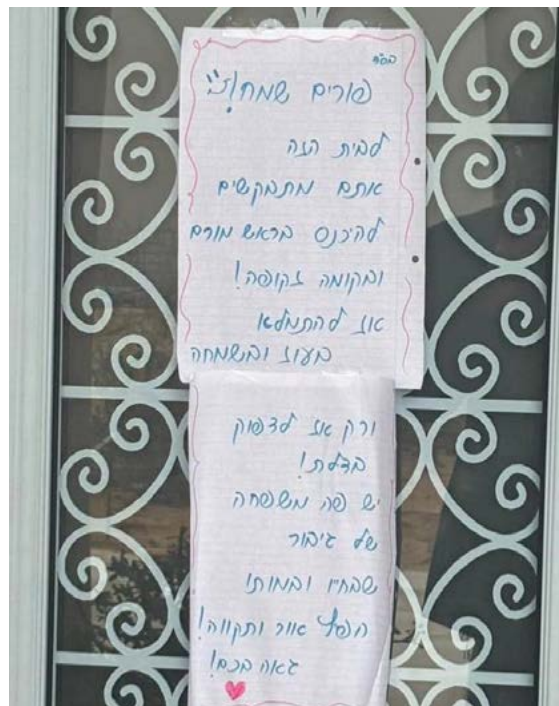 בס״ד
פורים שמח!
לבית הזה
אתם מתבקשים
להיכנס בראש מורם
ובקומה זקופה!
אנו להתמלא
בעוז ובשמחה
ורק אז לדפוק
בדלת!
יש פה משפחה
של גיבור
שבחייו ובמותו
הפיץ אור ותקווה!
גאה בכם!